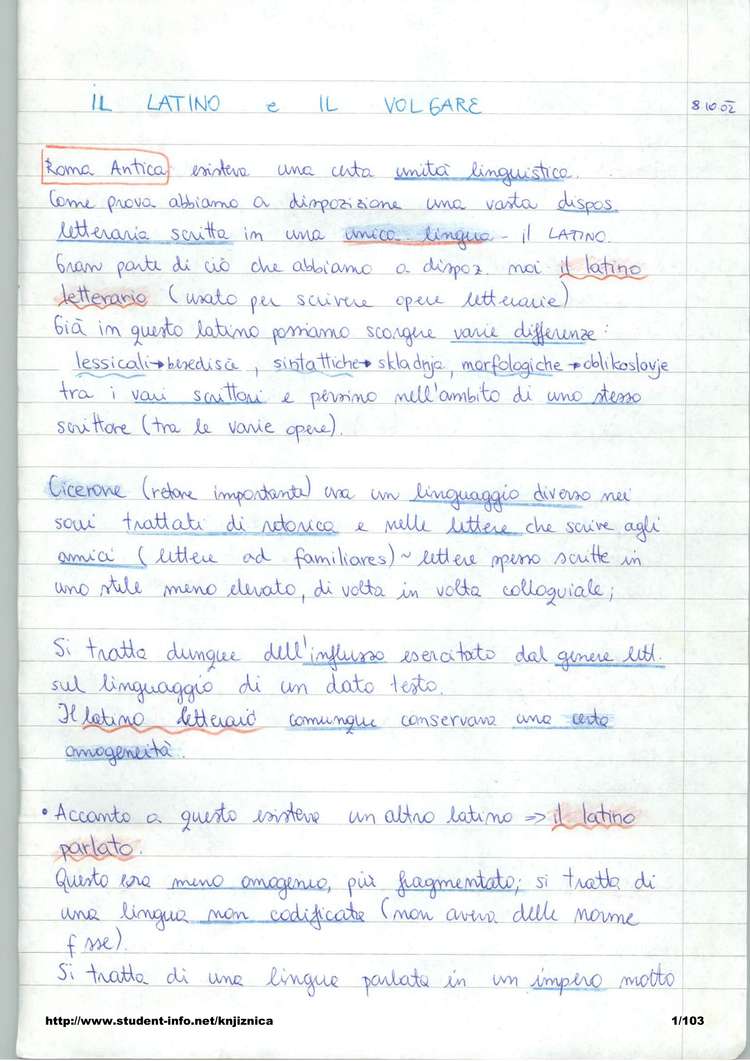 IL LATINO e IL VOLGARE 8 10 02
Roma Antica esisteva una certa unità linguistica.
Come prova abbiamo a dispozizione una vasta dispos.
letteraria scritta in una unica lingua - il LATINO.
Gran parte di ciò che abbiamo a dispoz. noi il latino
letterario (usato per scrivere opere letterarie)
Già in questo latino possiamo scorgere varie differenze:
lessicali→besedišče, sintattiche→skladnja, morfologiche→oblikoslovje
tra i vari scrittori e persino nell'ambito di uno stesso
scrittore (tra le varie opere).
Cicerone (retore importante) usa un linguaggio diverso nei
suoi trattati di retorica e nelle lettere che scrive agli
amici (lettere ad familiares) ~ lettere spesso scritte in
uno stile meno elevato, di volta in volta colloquiale;
Si tratta dunque dell'influsso esercitato dal genere lett.
sul linguaggio di un dato testo.
Il latino letteraio comunque conservava una certa
omogeneità.
• Accanto a questo esisteva un altro latino => il latino
parlato.
Questo era meno omogenio, più fragmentato; si tratta di
una lingua non codificata (non aveva delle norme
fisse).
Si tratta di una lingua parlata in un impero molto
http://www.student-info.net/knjiznica 1/103